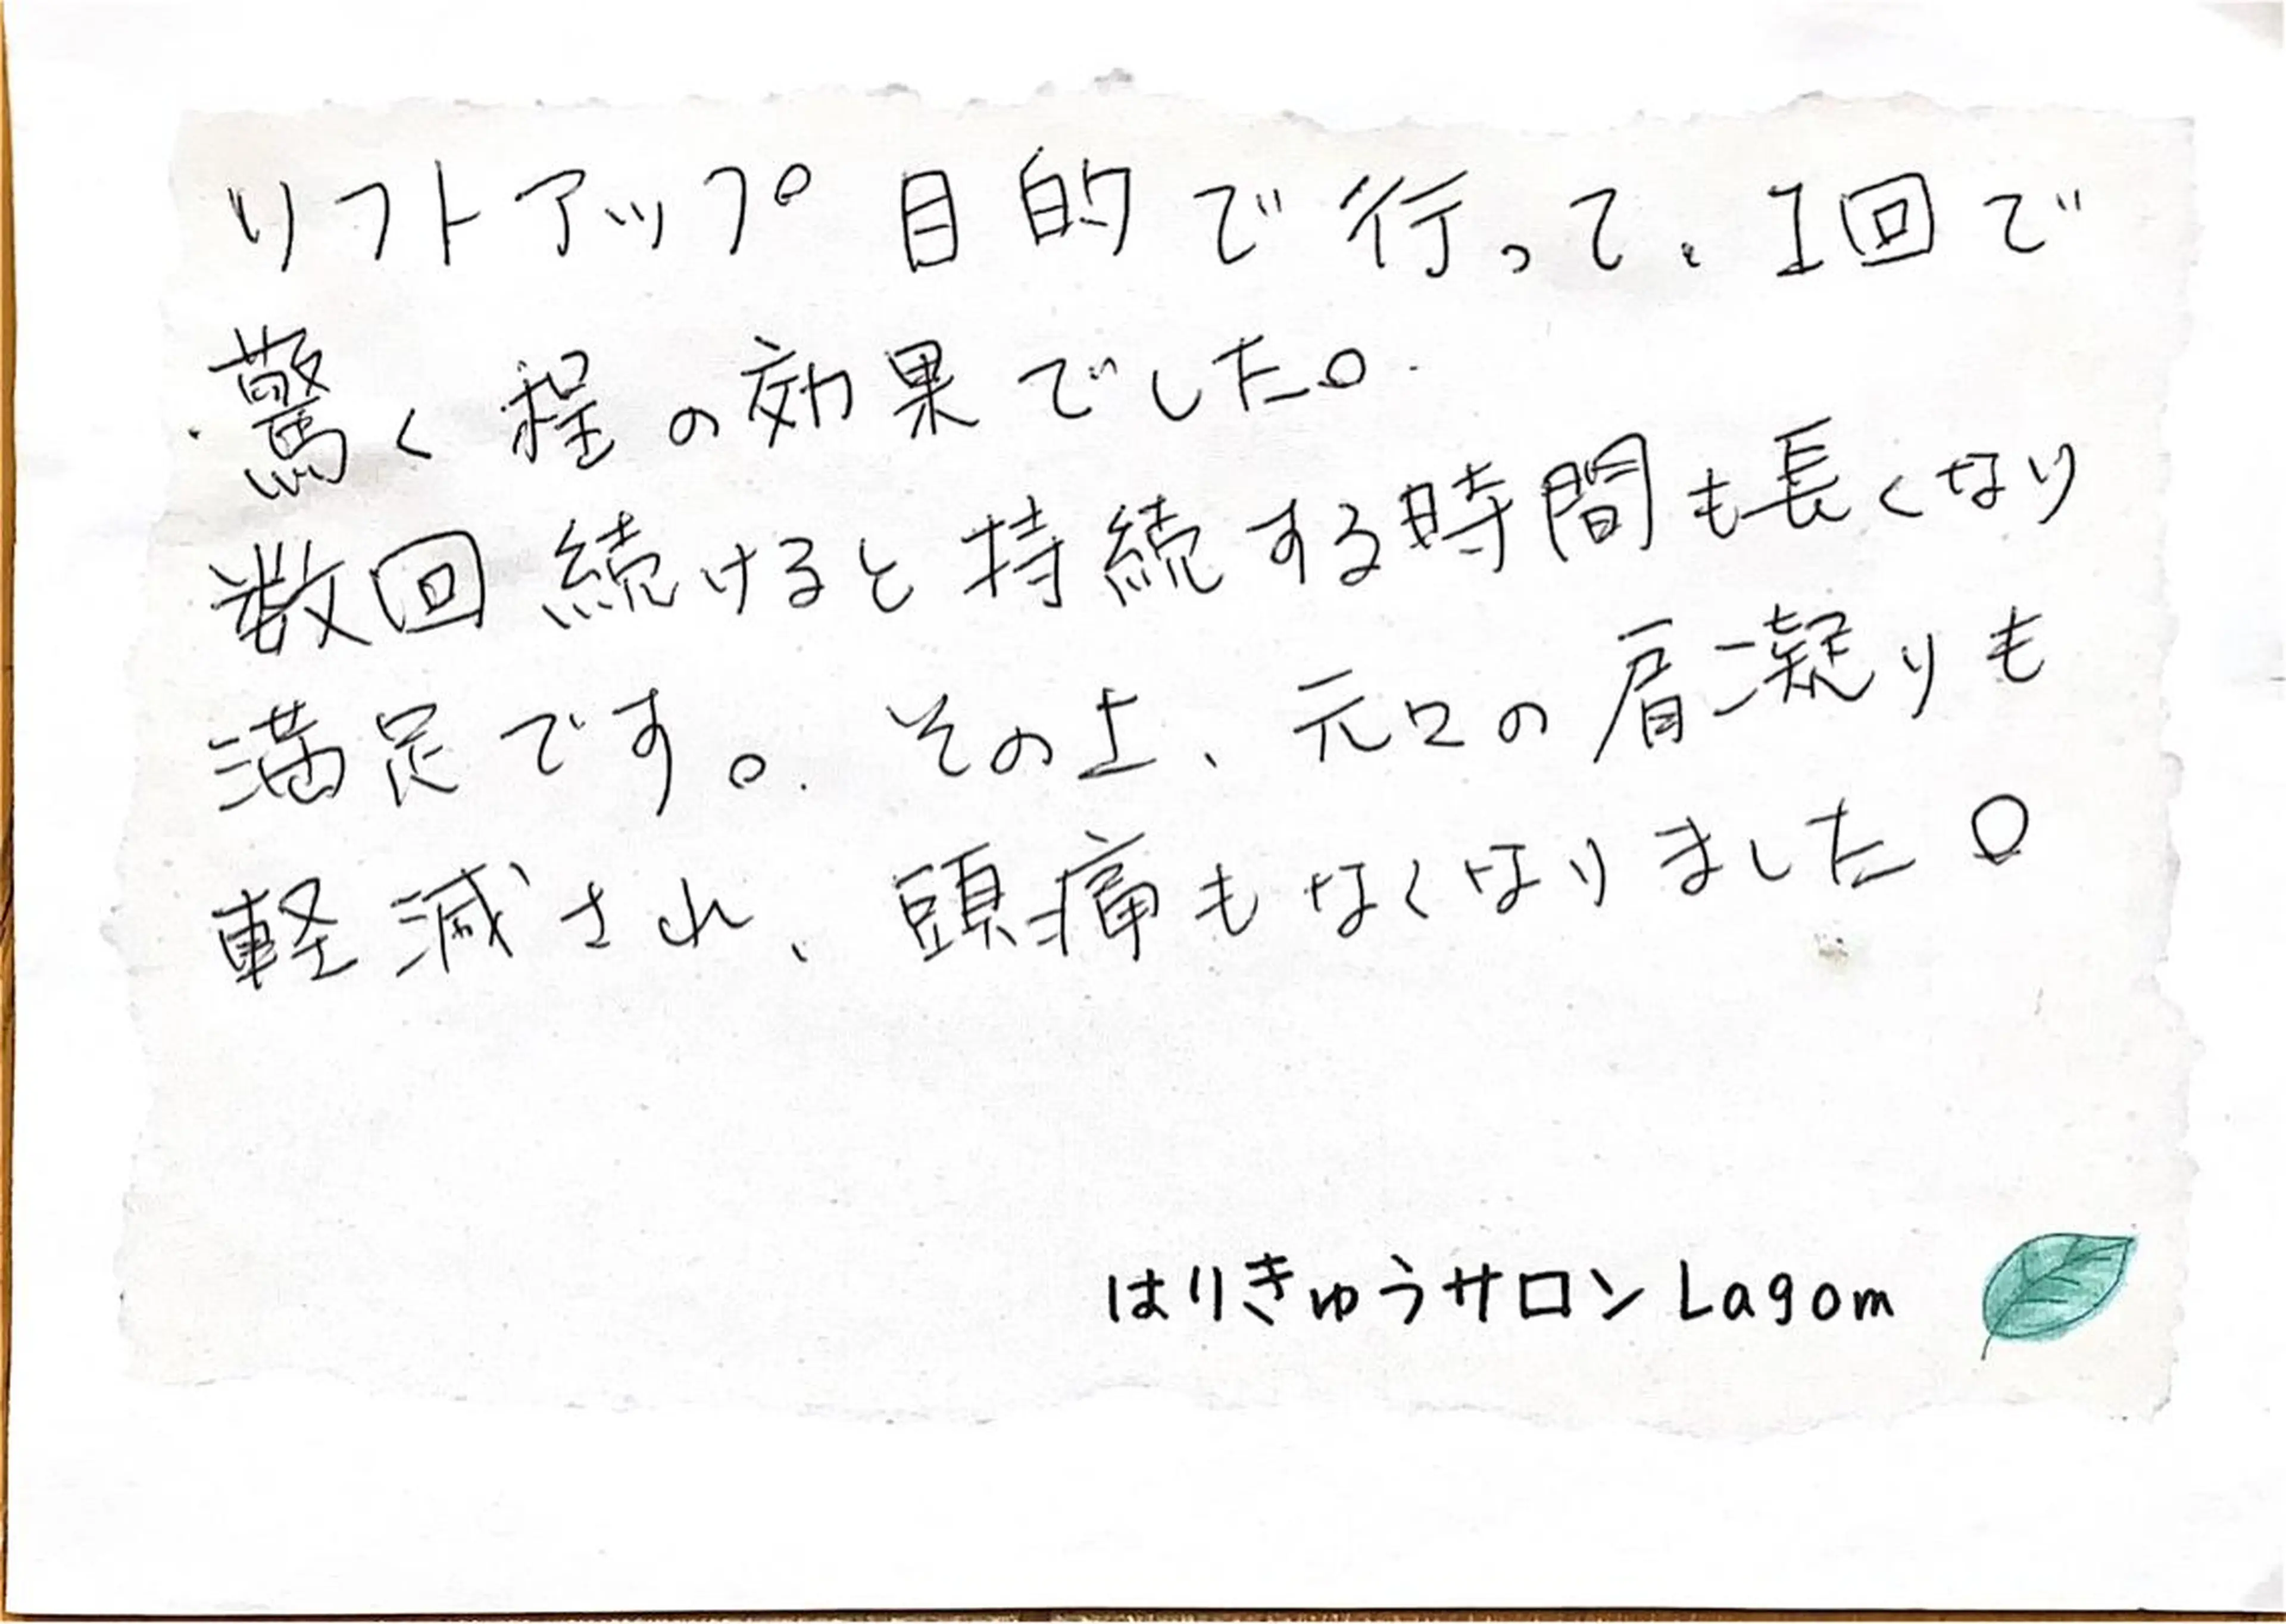 リフトアップ目的で行って、1回で
驚く程の効果でした。
数回続けると持続する時間も長くなり
満足です。その上、元々の肩凝りも
軽減され、頭痛もなくなりました。
はりきゅうサロン Lagom